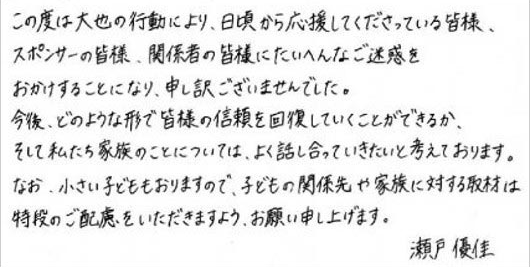 この度は大也の行動により、日頃から応援してくださっている皆様、
スポンサーの皆様、関係者の皆様にたいへんなご迷惑を
おかけすることになり、申し訳ございませんでした。
今後、どのような形で皆様の信頼を回復していくことができるか、
そして私たち家族のことについては、よく話し合っていきたいと考えております。
なお、小さい子どももおりますので、子どもの関係先や家族に対する取材は
特段のご配慮をいただきますよう、お願い申し上げます。
瀬戸優佳